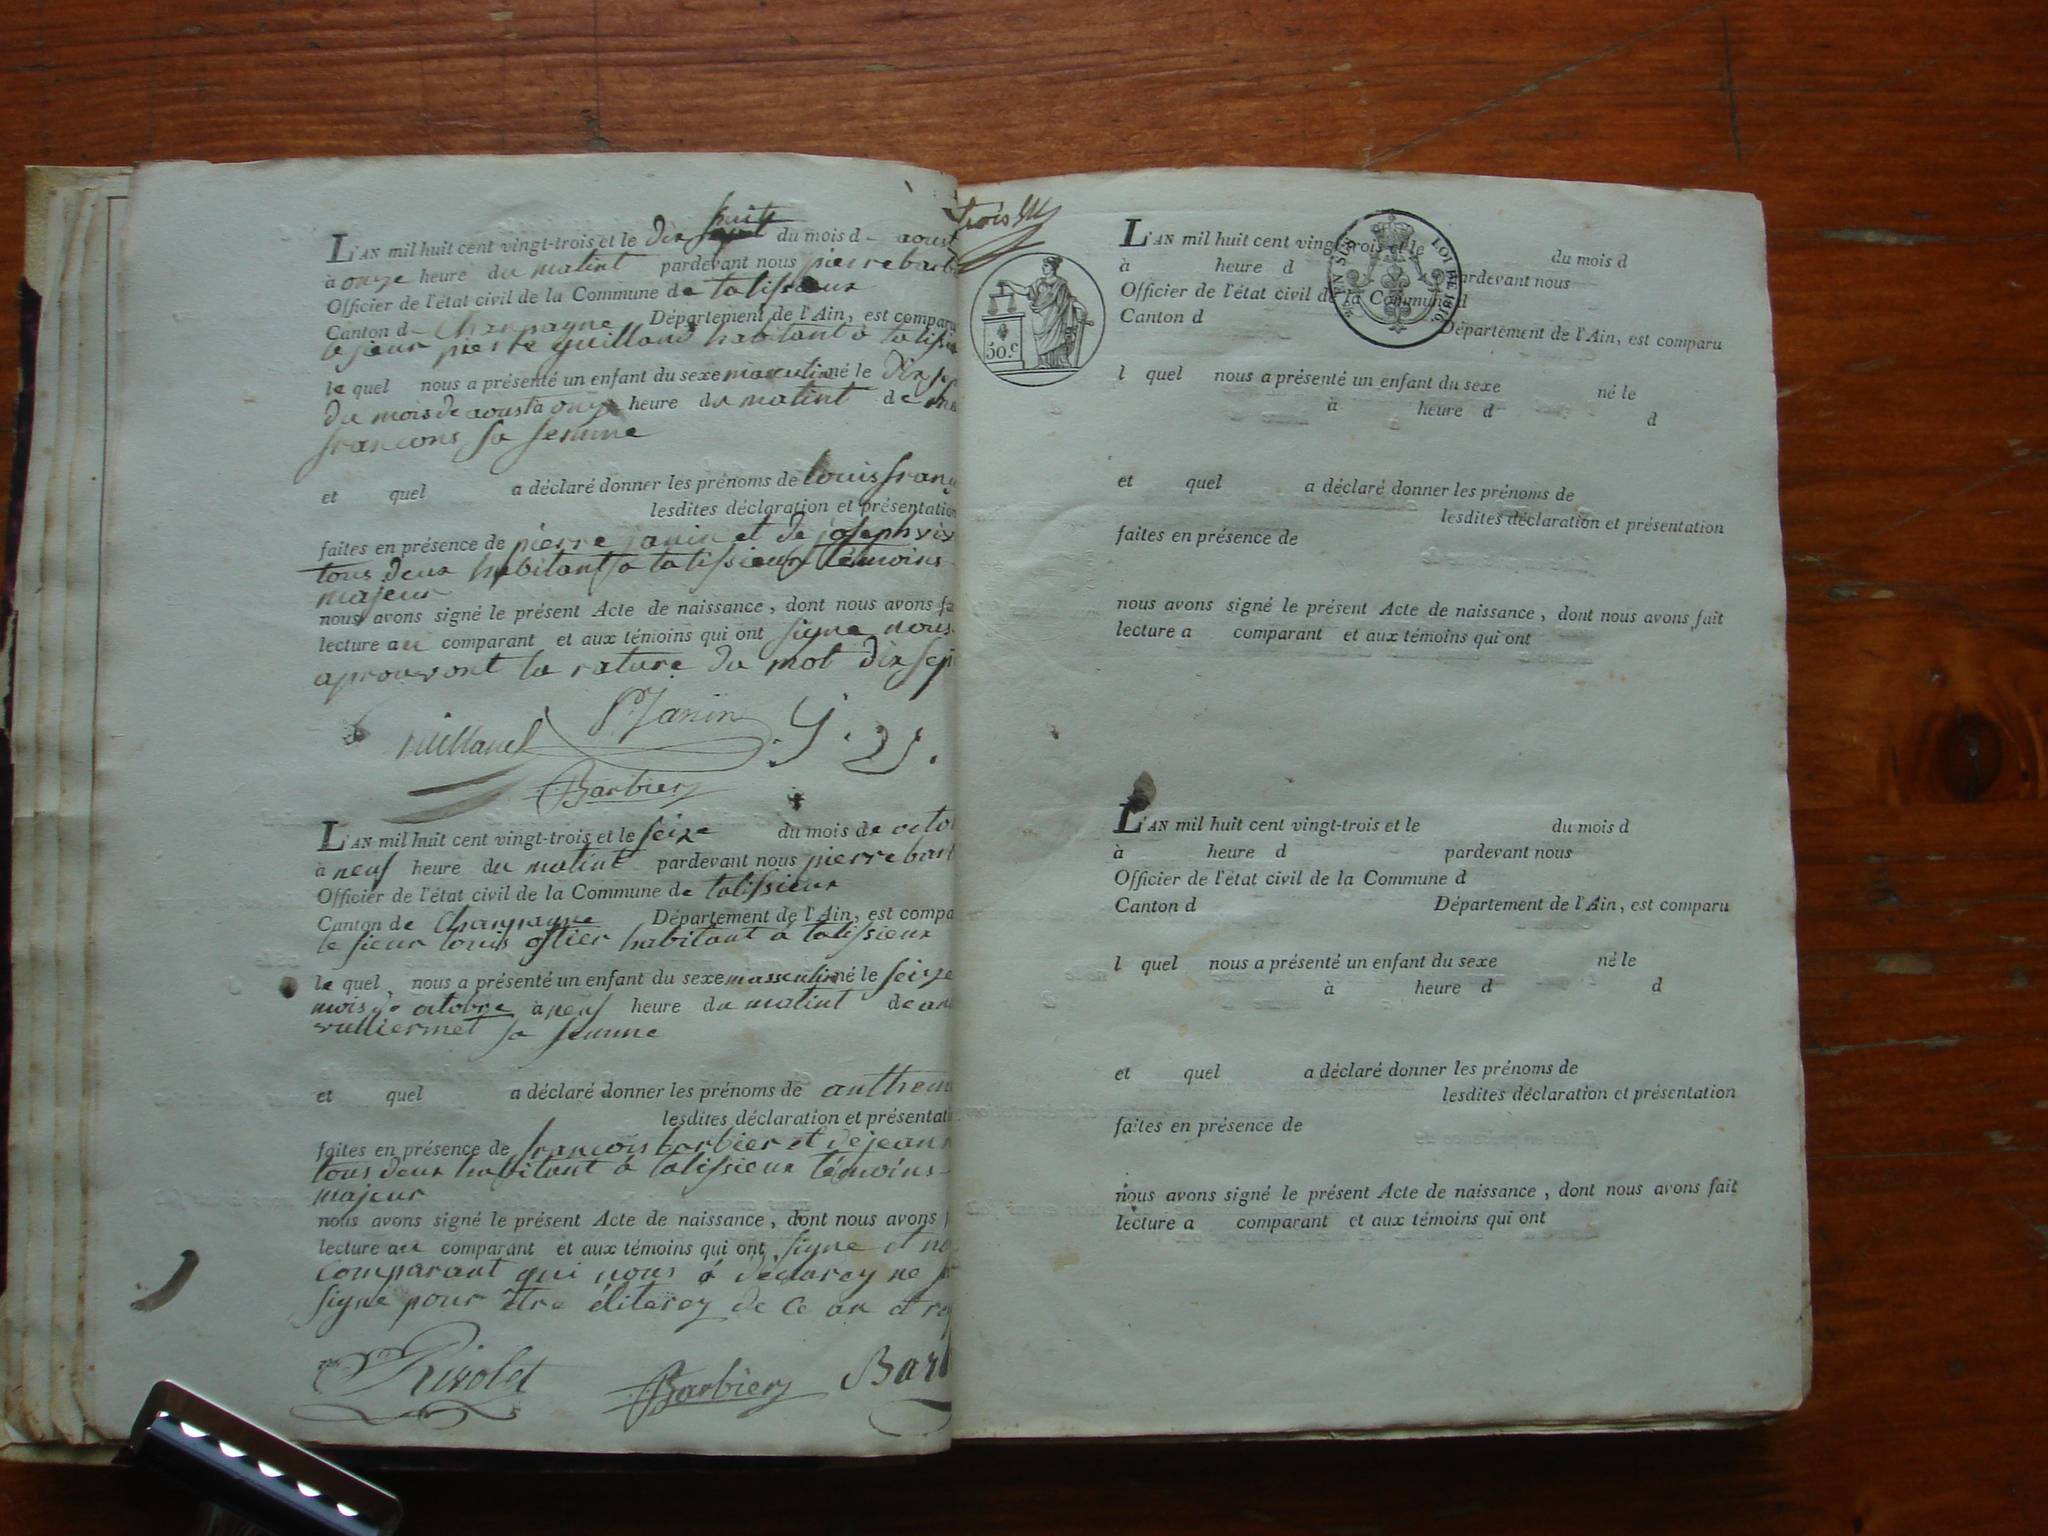 L'AN mil huit cent vingt-trois et le dix huit du mois d aoust
à onze heure du matint pardevant nous pierre barb
Officier de l'état civil de la Commune de talissieux
Canton d Champagne Département de l'Ain, est comparu
le sieur pierre guilland habitant à talissi
le quel nous a présenté un enfant du sexe masculin né le dix sep
du mois de aoust à onze heure du matint de
francons sa femme
et quel a déclaré donner les prénoms de louis franç
lesdites déclaration et présentation
faites en présence de pierre janin et de joseph vix
tous deux habitant à talissieux témoins
majeur
nous avons signé le présent Acte de naissance, dont nous avons fa
lecture au comparant et aux témoins qui ont signe nous
aprouvont la rature du mot dix sept
P. Janin
uilland
Barbier
L'AN mil huit cent vingt-trois et le seize du mois de octo
à neuf heure du matint pardevant nous pierre barb
Officier de l'état civil de la Commune de talissieux
Canton de Champagne Département de l'Ain, est compa
le sieur louis ostier habitant à talissieux
le quel nous a présenté un enfant du sexe massculin né le seize
mois de octobre à neuf heure du matint de an
vulliermet sa femme
et quel a déclaré donner les prénoms de anthem
lesdites déclaration et présentati
faites en présence de françois barbier et de jean
tous deux habitant à talissieux témoins
majeur
nous avons signé le présent Acte de naissance, dont nous avons
lecture au comparant et aux témoins qui ont signe et no
comparant qui nous à déclarez ne
signé pour être éliterez de ce an et re
Rivolet Barbier Barb
trois
50.c
TIMB. LOI DE 1816.
L'AN mil huit cent vingt-trois et le du mois d
à heure d pardevant nous
Officier de l'état civil de la Commune d
Canton d Département de l'Ain, est comparu
l quel nous a présenté un enfant du sexe né le
à heure d d
et quel a déclaré donner les prénoms de
lesdites déclaration et présentation
faites en présence de
nous avons signé le présent Acte de naissance, dont nous avons fait
lecture a comparant et aux témoins qui ont
L'AN mil huit cent vingt-trois et le du mois d
à heure d pardevant nous
Officier de l'état civil de la Commune d
Canton d Département de l'Ain, est comparu
l quel nous a présenté un enfant du sexe né le
à heure d d
et quel a déclaré donner les prénoms de
lesdites déclaration et présentation
faites en présence de
nous avons signé le présent Acte de naissance, dont nous avons fait
lecture a comparant et aux témoins qui ont